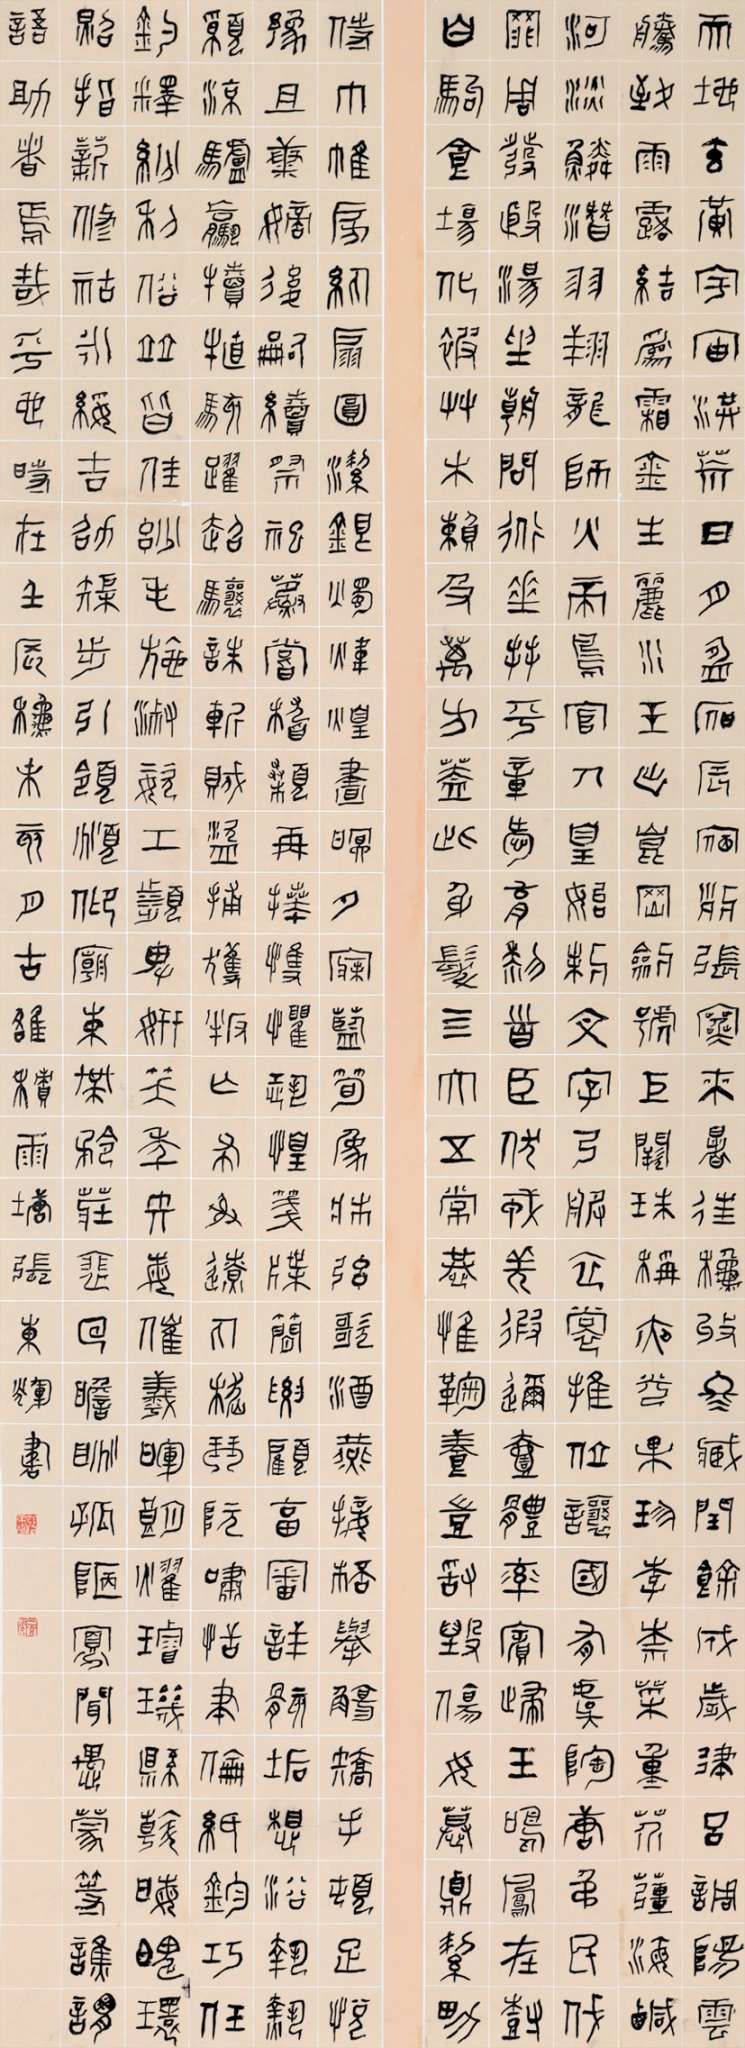 天地玄黃宇宙洪荒日月盈昃辰宿列張寒來暑往秋收冬藏閏餘成歲律呂調陽雲
騰致雨露結為霜金生麗水玉出崑岡劍號巨闕珠稱夜光果珍李柰菜重芥薑海鹹
河淡鱗潛羽翔龍師火帝鳥官人皇始制文字乃服衣裳推位讓國有虞陶唐弔民伐
罪周發殷湯坐朝問道垂拱平章愛育黎首臣伏戎羌遐邇壹體率賓歸王鳴鳳在樹
白駒食場化被草木賴及萬方蓋此身髮四大五常恭惟鞠養豈敢毀傷女慕貞潔男
侍巾帷房紈扇圓潔銀燭煒煌晝眠夕寐藍筍象床弦歌酒宴接杯舉觴矯手頓足悅
豫且康嫡後嗣續祭祀蒸嘗稽顙再拜悚懼恐惶箋牒簡要顧答審詳骸垢想浴執熱
願涼驢騾犢特駭躍超驤誅斬賊盜捕獲叛亡布射遼丸嵇琴阮嘯恬筆倫紙鈞巧任
釣釋紛利俗並皆佳妙毛施淑姿工顰妍笑年矢每催羲暉朗曜璇璣懸斡晦魄環
照指薪修祜永綏吉劭矩步引領俯仰廟束帶矜莊徘徊瞻眺孤陋寡聞愚蒙等誚謂
語助者焉哉乎也時在壬辰穐月古雒積雨塘張東輝書